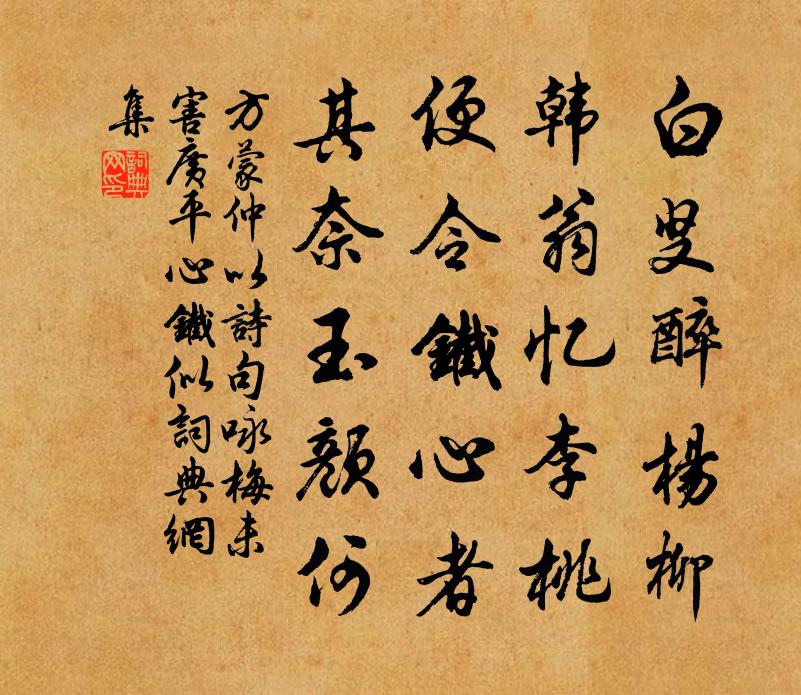 白叟醉楊柳
韩翁忆李桃
便令鐵心者
其奈玉顏何
方蒙仲以詩句咏梅未
害廣平心鐵似詞典網
集
詞典網印